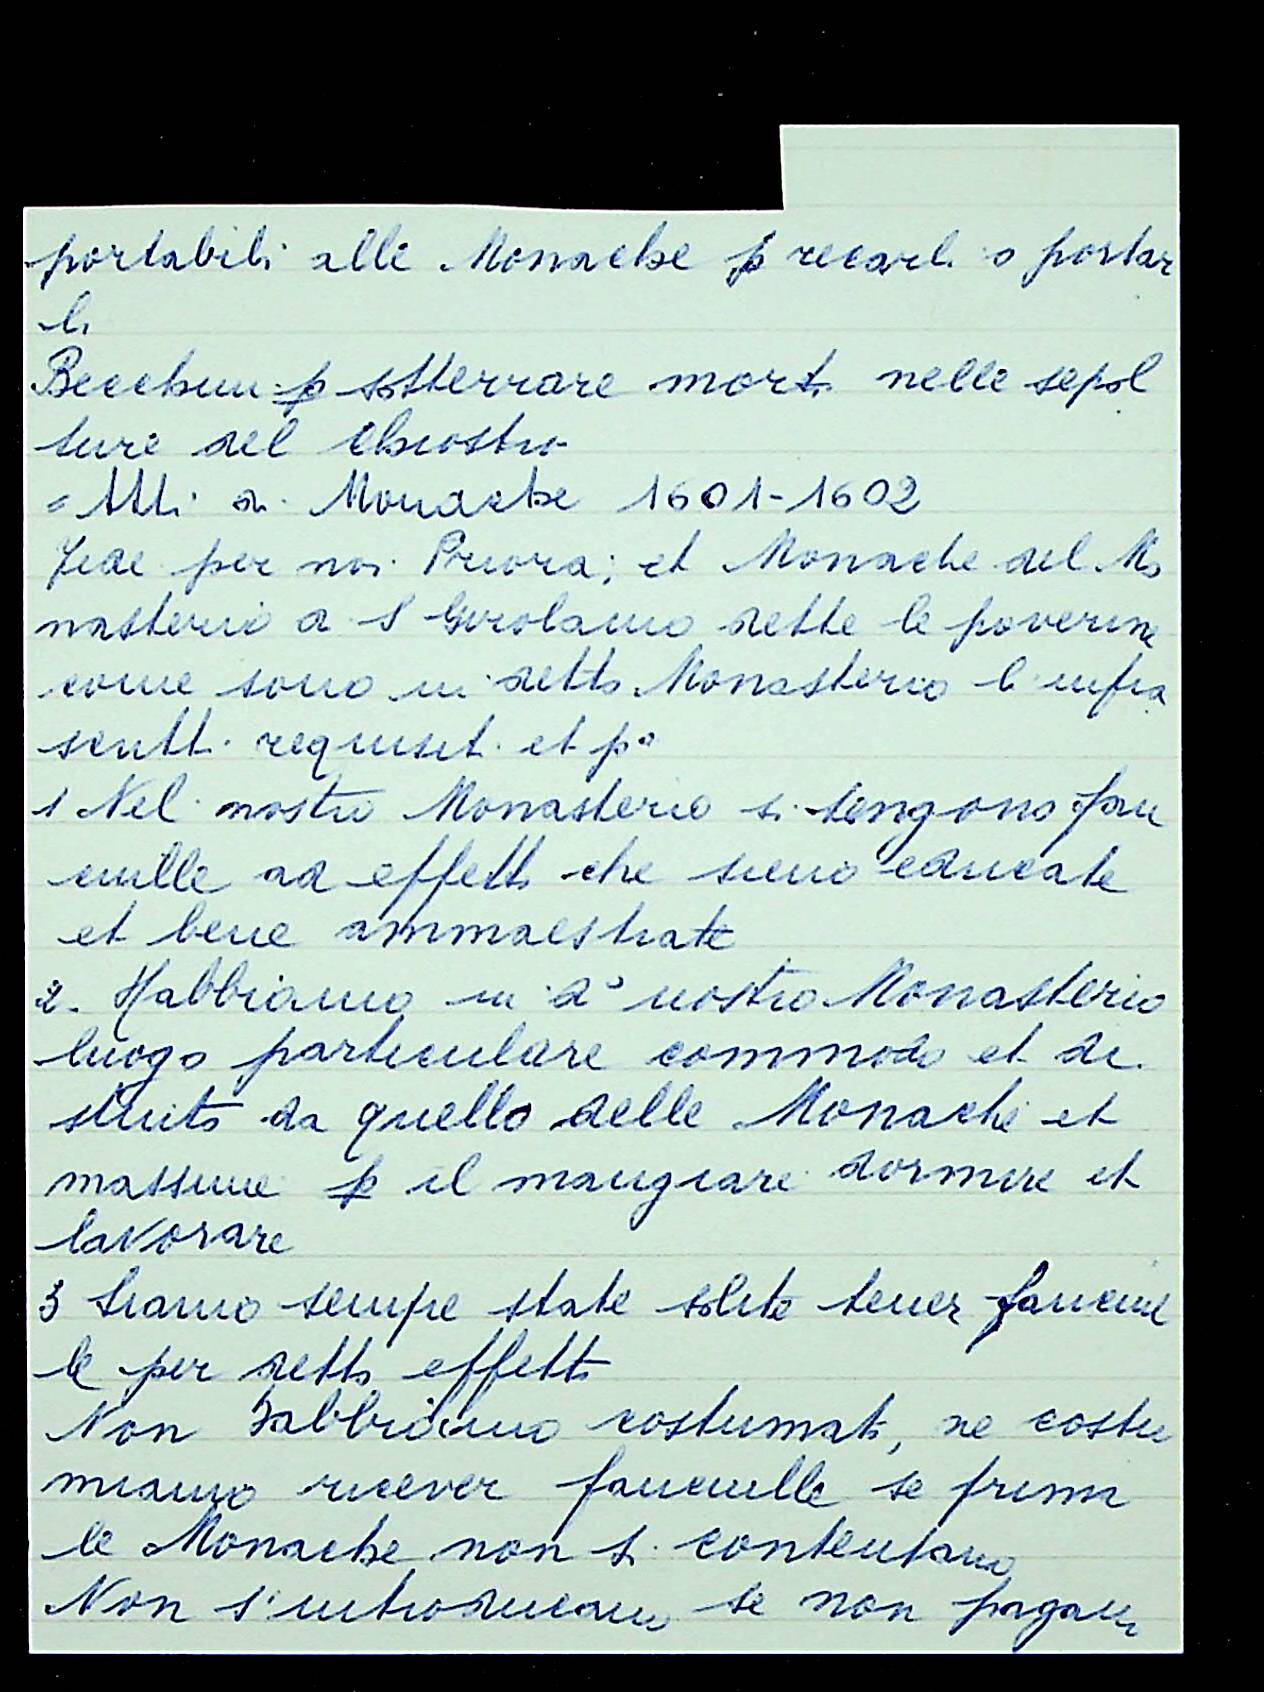 portabili alle Monache p recarli o portar
li
Becchini p sotterrare morti nelle sepol
ture del Chiostro
= Atti di Monache 1601-1602
Fede per noi Priora; et Monache del Mo
nasterio di S Girolamo dette le poverine
come sono in detto Monasterio l'infra
scritti requisiti et po
1 Nel nostro Monasterio si tengono fan
ciulle ad effetto che sieno educate
et bene ammaestrate
2. Habbiamo in do nostro Monasterio
luogo particulare commodo et di
stinto da quello delle Monache et
massime p il mangiare dormire et
lavorare
3 Siamo sempre state solite tener fanciul
le per detto effetto
Non habbiamo costumato, ne costu
miamo ricever fanciulle se prima
le Monache non si contentano
Non s'introducano se non pagano